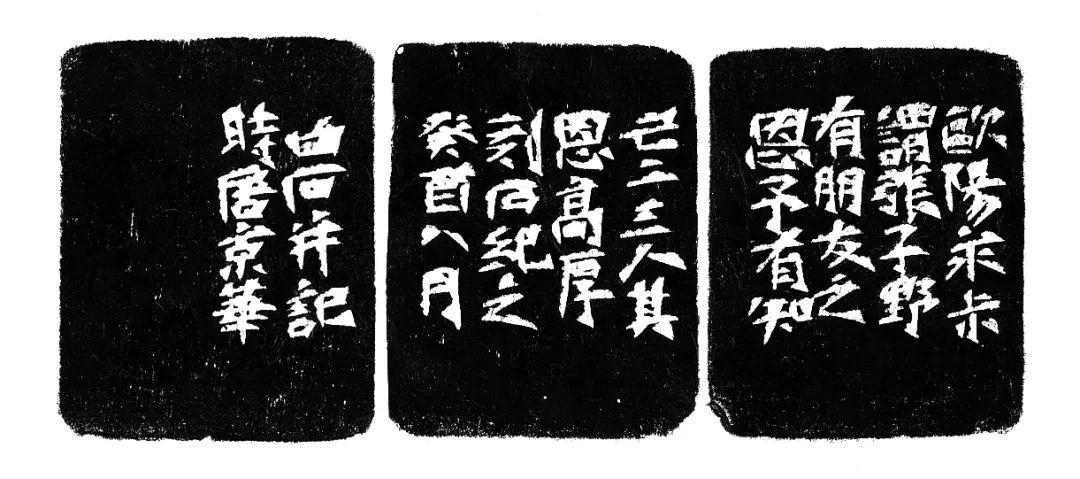 歐陽永尗
謂張子野
有朋友之
恩予有知
己二三人其
恩高厚
刻石紀之
癸酉八月
白石并記
時居京華